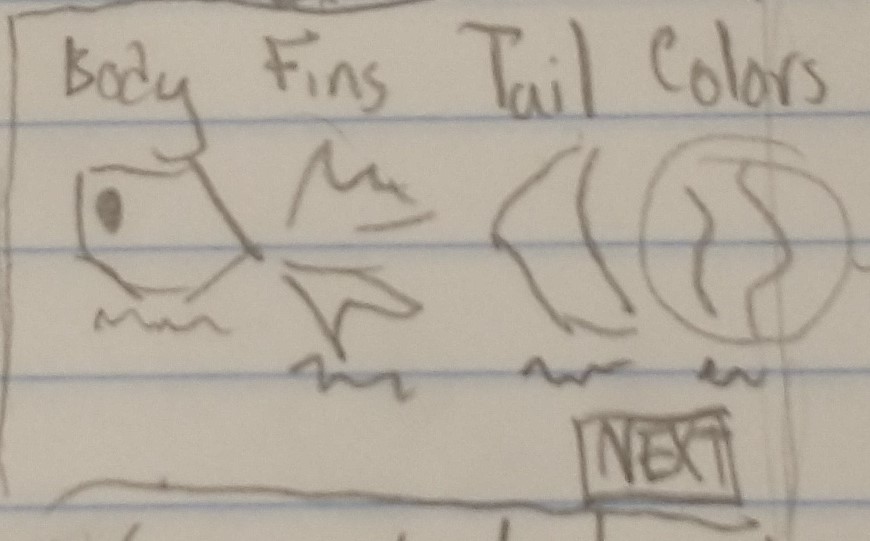 Body Fins Tail Colors
NEXT